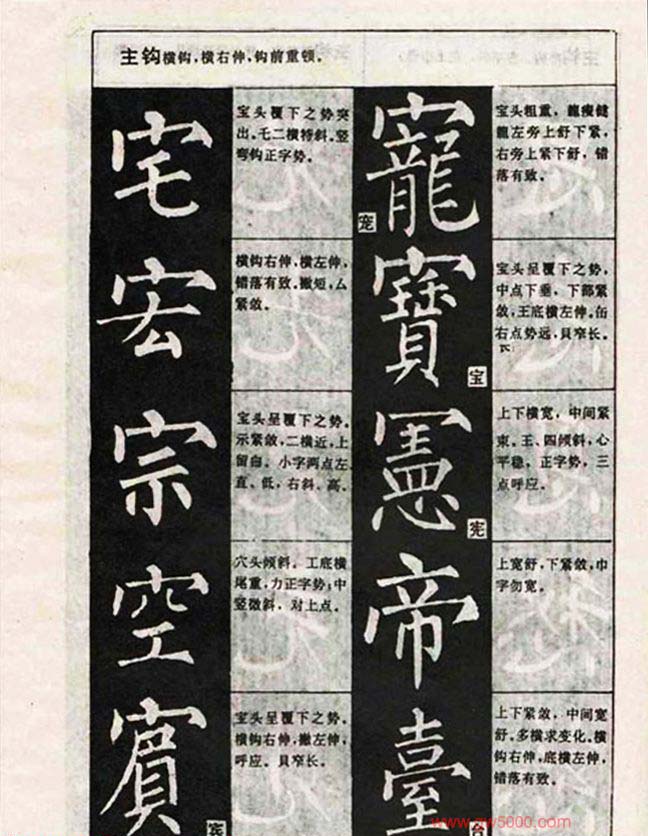 主钩横钩，横右伸，钩前重顿。
宅
宝头覆下之势突
出。乇二横特斜。竖
弯钩正字势。
宏
横钩右伸，横左伸，
错落有致。撇短，厶
紧敛。
宗
宝头呈覆下之势。
示紧敛，二横近，上
留白。小字两点左
直、低，右斜、高。
空
穴头倾斜。工底横
尾重，力正字势；中
竖微斜，对上点。
賓
宾
宝头呈覆下之势。
横钩右伸，撇左伸，
呼应。貝窄长。
寵
宠
宝头粗重，龍瘦健
龍左旁上舒下紧，
右旁上紧下舒，错
落有致。
寶
宝
宝头呈覆下之势，
中点下垂，下部紧
敛，王底横左伸。缶
右点势远，貝窄长。
憲
宪
上下横宽，中间紧
束。王、四倾斜，心
平稳，正字势，三
点呼应。
帝
上宽舒，下紧敛，巾
字勿宽。
臺
台
上下紧敛，中间宽
舒。多横求变化。横
钩右伸，底横左伸，
错落有致。